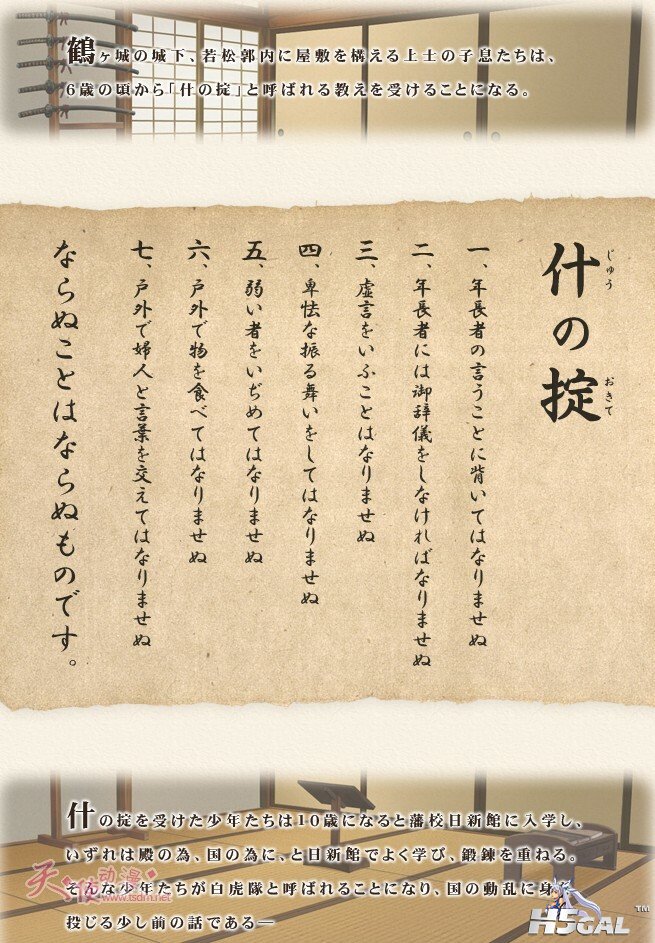 鶴ヶ城の城下、若松郭内に屋敷を構える上士の子息たちは、
6歳の頃から「什の掟」と呼ばれる教えを受けることになる。
什の掟
じゅう
おきて
一、年長者の言うことに背いてはなりませぬ
二、年長者には御辞儀をしなければなりませぬ
三、虚言をいふことはなりませぬ
四、卑怯な振る舞いをしてはなりませぬ
五、弱い者をいぢめてはなりませぬ
六、戸外で物を食べてはなりませぬ
七、戸外で婦人と言葉を交えてはなりませぬ
ならぬことはならぬものです。
什の掟を受けた少年たちは10歳になると藩校日新館に入学し、
いずれは殿の為、国の為に、と日新館でよく学び、鍛錬を重ねる。
そんな少年たちが白虎隊と呼ばれることになり、国の動乱に身を
投じる少し前の話である―
天使动漫
www.tsdm.net
H5GAL
TM